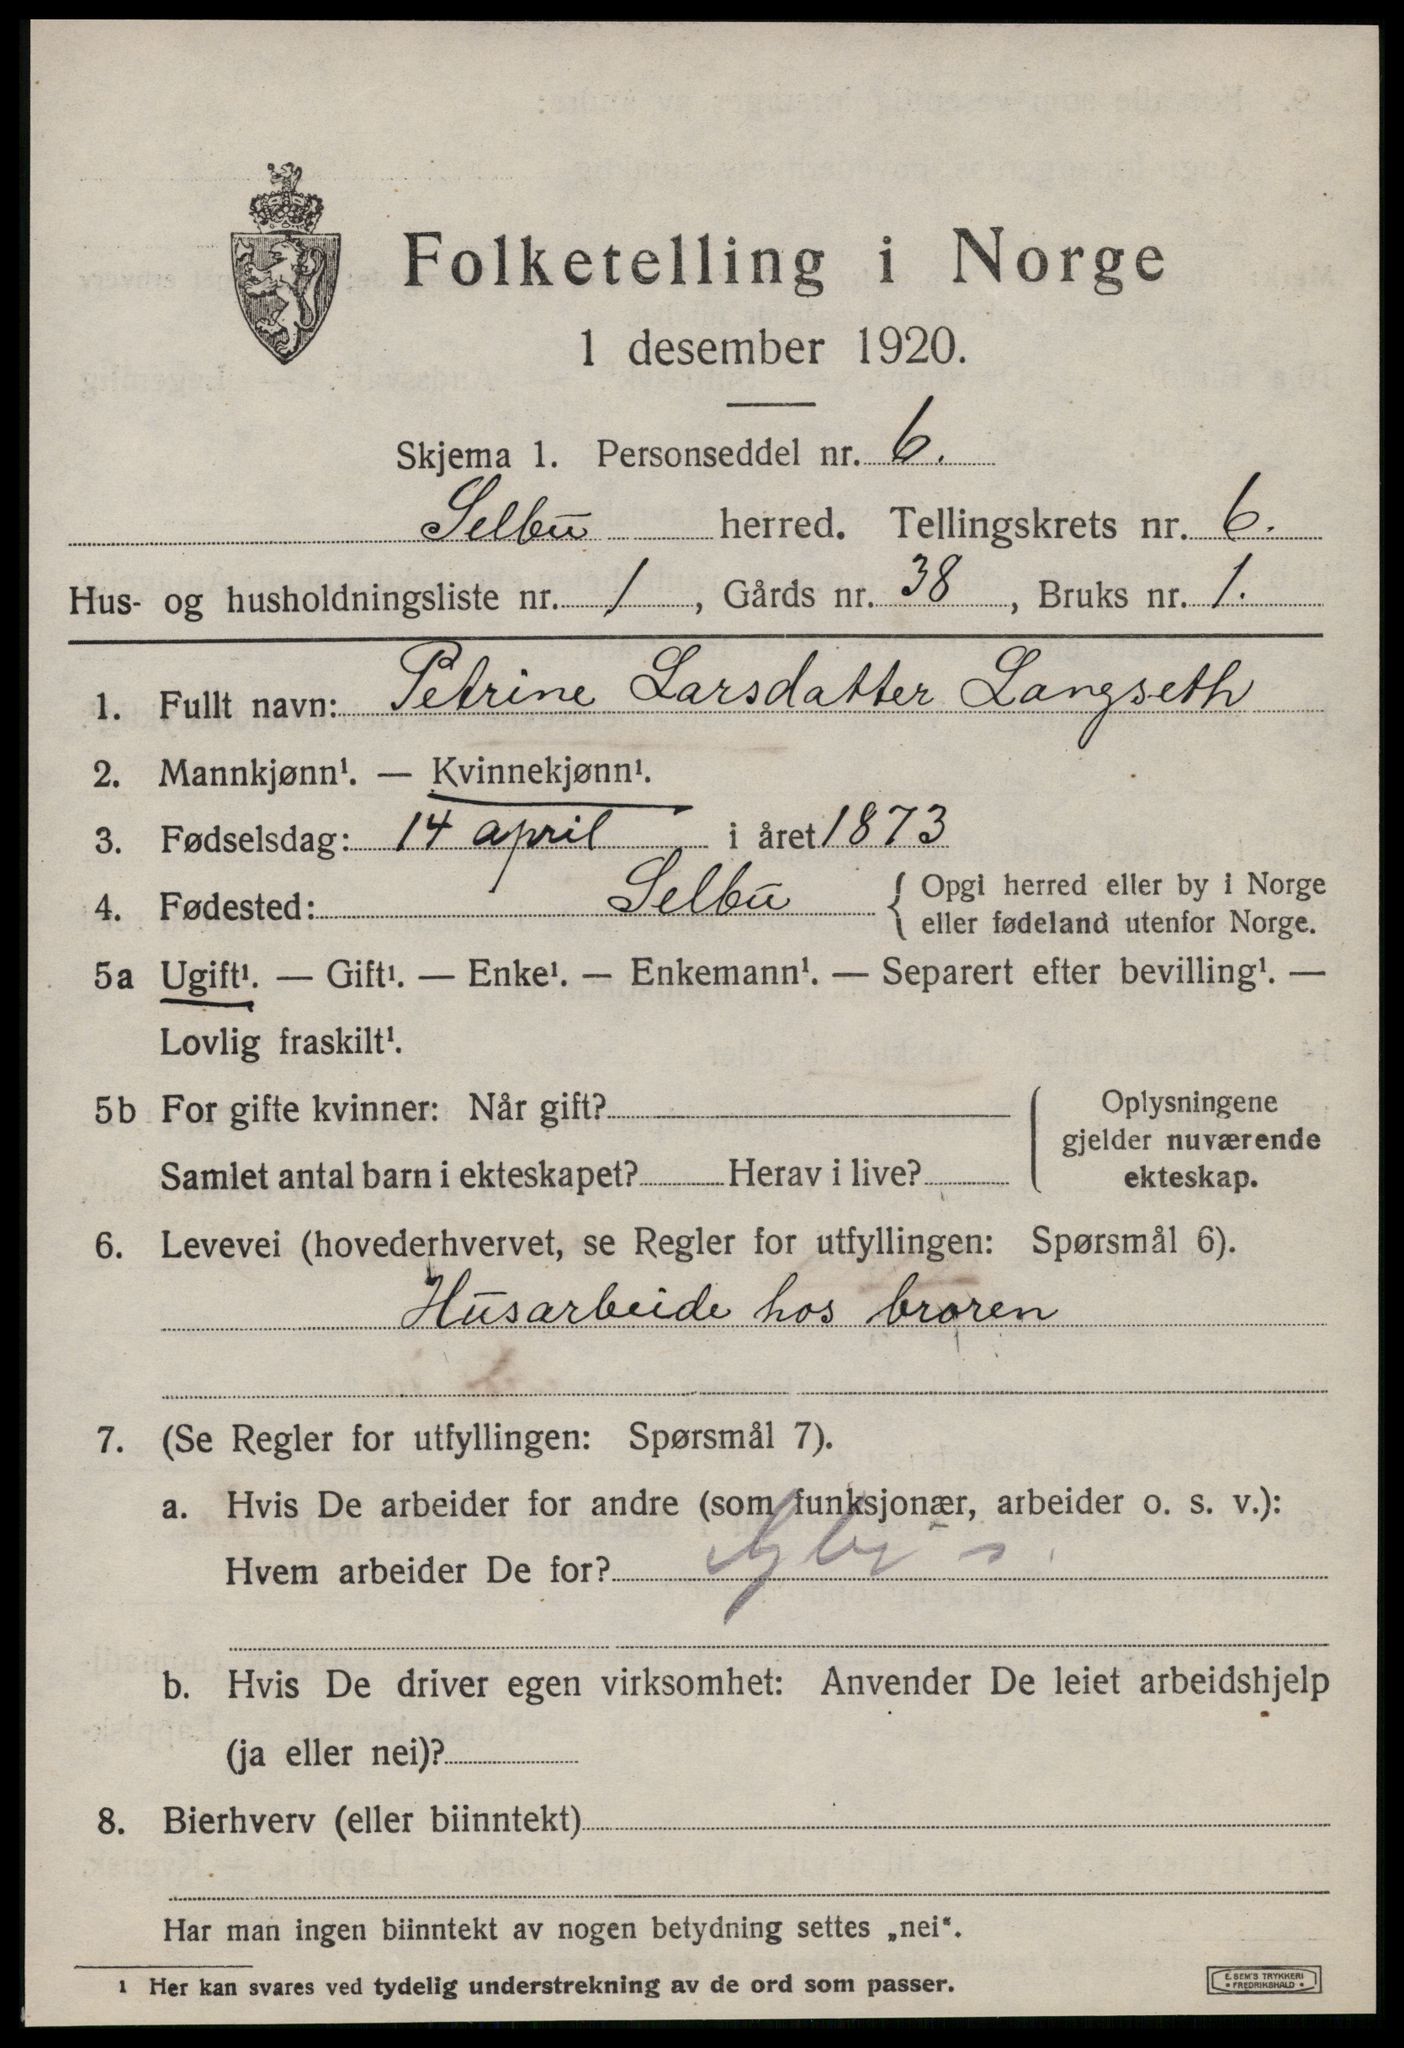 Folketelling i Norge
1 desember 1920.
Skjema 1. Personseddel nr. 6.
Selbu herred. Tellingskrets nr. 6.
Hus- og husholdningsliste nr. 1, Gårds nr. 38, Bruks nr. 1.
1. Fullt navn: Petrine Larsdatter Langseth
2. Mannkjønn¹. — Kvinnekjønn¹.
3. Fødselsdag: 14 april i året 1873
4. Fødested: Selbu { Opgi herred eller by i Norge
eller fødeland utenfor Norge.
5a Ugift¹. — Gift¹. — Enke¹. — Enkemann¹. — Separert efter bevilling¹. —
Lovlig fraskilt¹.
5b For gifte kvinner: Når gift?
Samlet antal barn i ekteskapet? Herav i live?
Oplysningene
gjelder nuværende
ekteskap.
6. Levevei (hovederhvervet, se Regler for utfyllingen: Spørsmål 6).
Husarbeide hos broren
7. (Se Regler for utfyllingen: Spørsmål 7).
a. Hvis De arbeider for andre (som funksjonær, arbeider o. s. v.):
Hvem arbeider De for?
b. Hvis De driver egen virksomhet: Anvender De leiet arbeidshjelp
(ja eller nei)?
8. Bierhverv (eller biinntekt)
Har man ingen biinntekt av nogen betydning settes „nei“.
1 Her kan svares ved tydelig understrekning av de ord som passer.
E. SEM'S TRYKKERI
• FREDRIKSHALD •